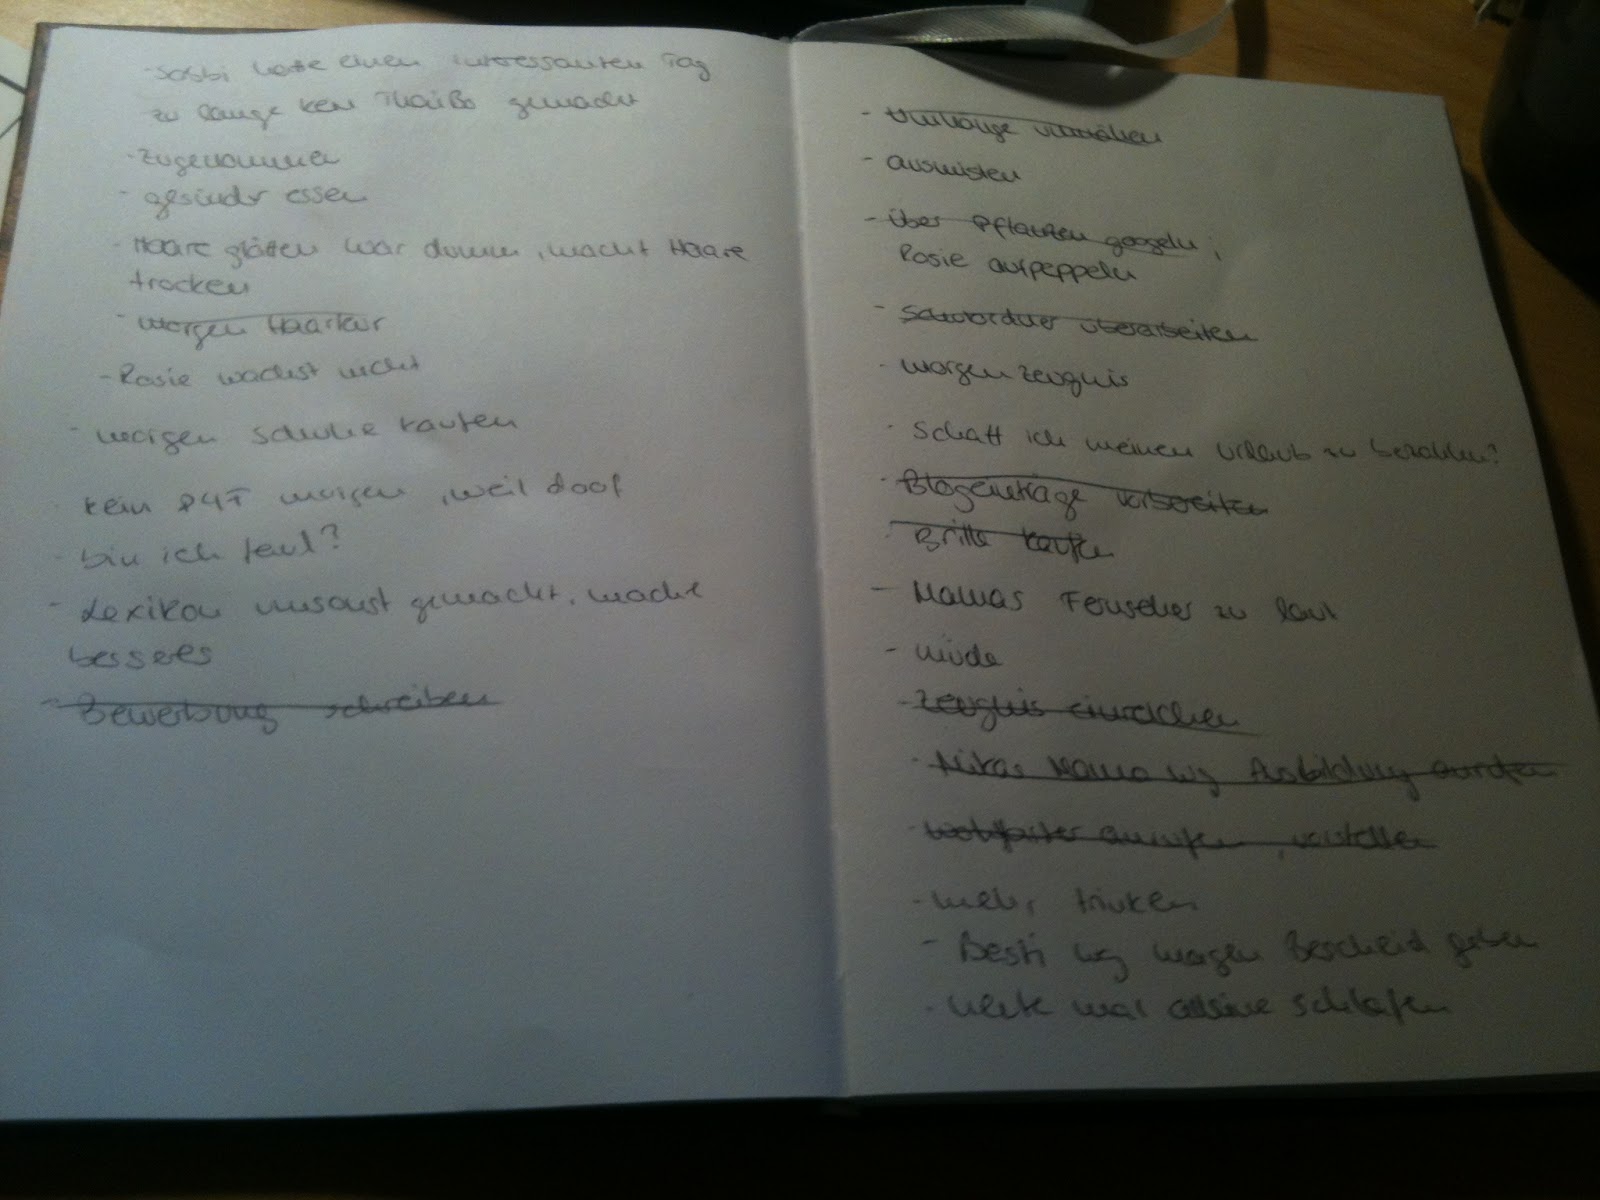 - Sabbi hatte einen interessanten Tag
zu lange kein ThaiBo gemacht
- zugenommen
- gesünder essen
- Haare glätten war dumm, macht Haare
trocken
- morgen Haarkur
- Rosie wächst nicht
- morgen Schuhe kaufen
kein P4T morgen, weil doof
- bin ich faul?
- Lexikon umsonst gemacht, mache
besseres
- Bewerbung schreiben
- Vorhänge
- ausmisten
- über Pflanzen googeln,
Rosie aufpeppeln
- überarbeiten
- morgen Zeugnis
- Schaff ich meinen Urlaub zu bezahlen?
- Blogeinträge vorbereiten
- Brille kaufen
- Mamas Fernseher zu laut
- müde
- Zeugnis einreichen
- Mama wg Ausbildung
- anrufen, vorstellen
- mehr trinken
- Besti wg morgen Bescheid geben
- heute mal alleine schlafen